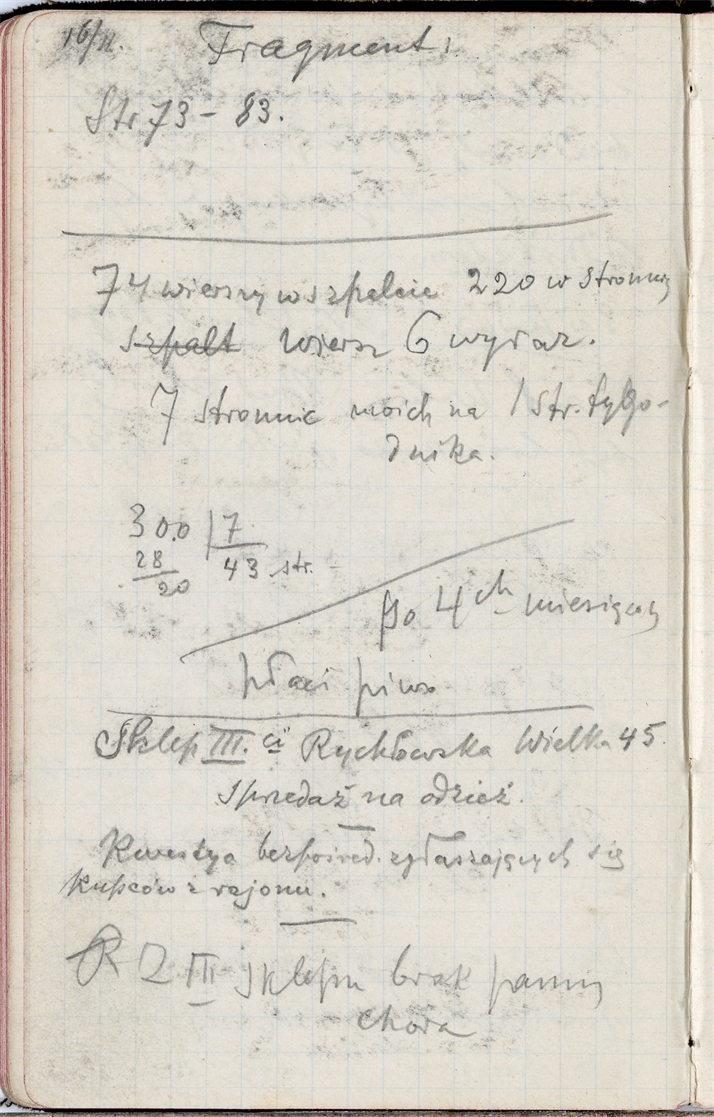 16/II. Fragment.
Str. 73 – 83.
74 wierszy w szpalcie 220 w stronnicy
szpalt wiersz 6 wyraz.
7 stronnic moich na 1 str. tygo-
dnika.
300 | 7
28 43 str.
20
po 4ch miesiącach
płaci piwo
Sklep III.ci Rychłowska Wielka 45
Sprzedaż na odzież.
Kwestya bezpośred. zgłaszających się
kupców z rejonu.
R 2 III sklepu brak panny
chora